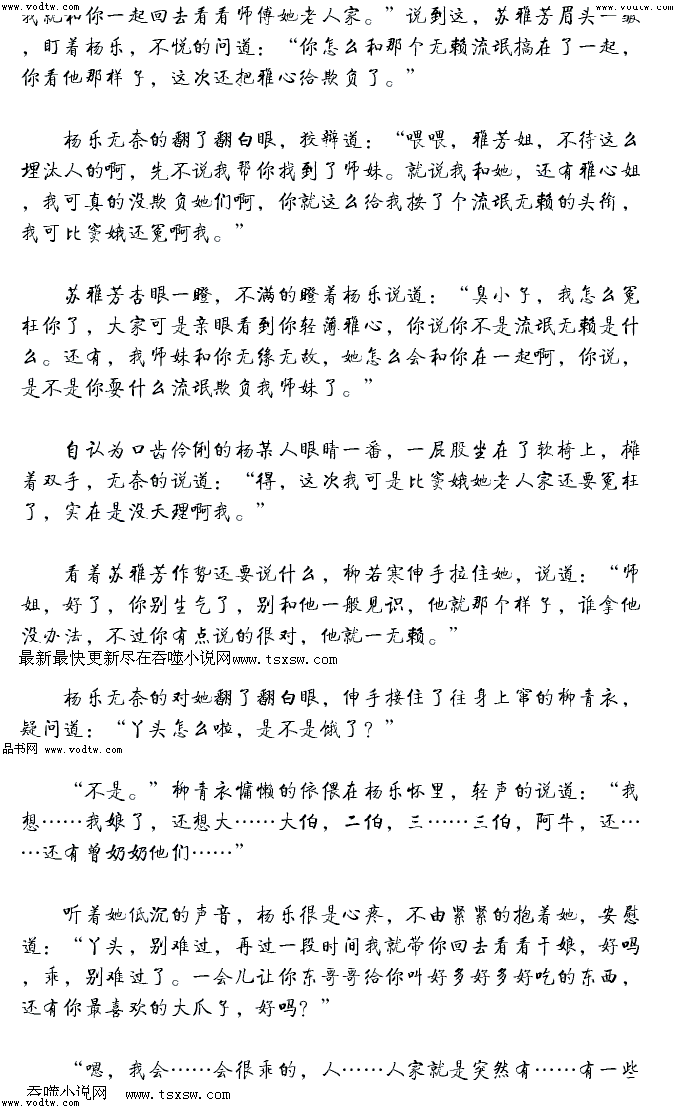 www.vodtw.com www.vodtw.com
我就和你一起回去看看师傅她老人家。”说到这，苏雅芳眉头一皱
，盯着杨乐，不悦的问道：“你怎么和那个无赖流氓搞在了一起，
你看他那样子，这次还把雅心给欺负了。”
杨乐无奈的翻了翻白眼，狡辩道：“喂喂，雅芳姐，不待这么
埋汰人的啊，先不说我帮你找到了师妹。就说我和她，还有雅心姐
，我可真的没欺负她们啊，你就这么给我按了个流氓无赖的头衔，
我可比窦娥还冤啊我。”
苏雅芳杏眼一瞪，不满的瞪着杨乐说道：“臭小子，我怎么冤
枉你了，大家可是亲眼看到你轻薄雅心，你说你不是流氓无赖是什
么。还有，我师妹和你无缘无故，她怎么会和你在一起啊，你说，
是不是你耍什么流氓欺负我师妹了。”
自认为口齿伶俐的杨某人眼睛一番，一屁股坐在了软椅上，摊
着双手，无奈的说道：“得，这次我可是比窦娥她老人家还要冤枉
了，实在是没天理啊我。”
看着苏雅芳作势还要说什么，柳若寒伸手拉住她，说道：“师
姐，好了，你别生气了，别和他一般见识，他就那个样子，谁拿他
没办法，不过你有点说的很对，他就一无赖。”
最新最快更新尽在吞噬小说网www.tsxsw.com
杨乐无奈的对她翻了翻白眼，伸手接住了往身上窜的柳青衣，
疑问道：“丫头怎么啦，是不是饿了？”
品书网 www.vodtw.com
“不是。”柳青衣慵懒的依偎在杨乐怀里，轻声的说道：“我
想……我娘了，还想大……大伯，二伯，三……三伯，阿牛，还…
…还有曾奶奶他们……”
听着她低沉的声音，杨乐很是心疼，不由紧紧的抱着她，安慰
道：“丫头，别难过，再过一段时间我就带你回去看看干娘，好吗
，乖，别难过了。一会儿让你东哥哥给你叫好多好多好吃的东西，
还有你最喜欢的大爪子，好吗？”
“嗯，我会……会很乖的，人……人家就是突然有……有一些
吞噬小说网 www.tsxsw.com
www.vodtw.com